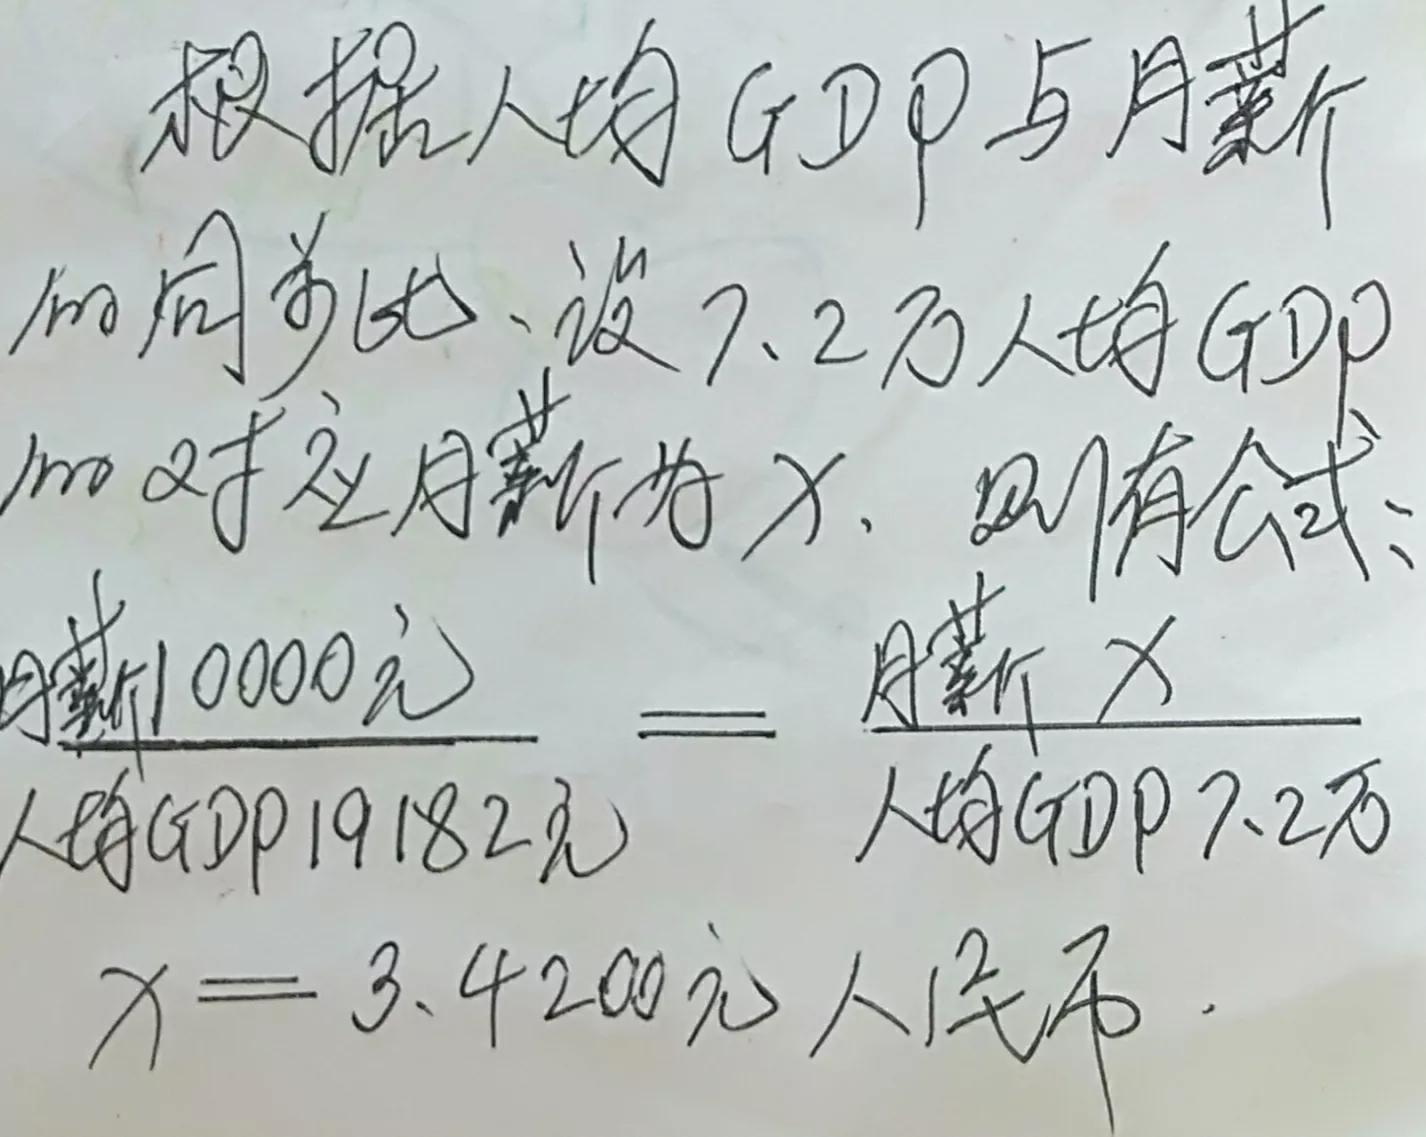 根据人均GDP与月薪
的同步比、设7.2万人均GDP
的对应月薪为X. 则有公式:
月薪10000元 = 月薪 X
人均GDP19182元 人均GDP7.2万
X=3.4200元人民币.